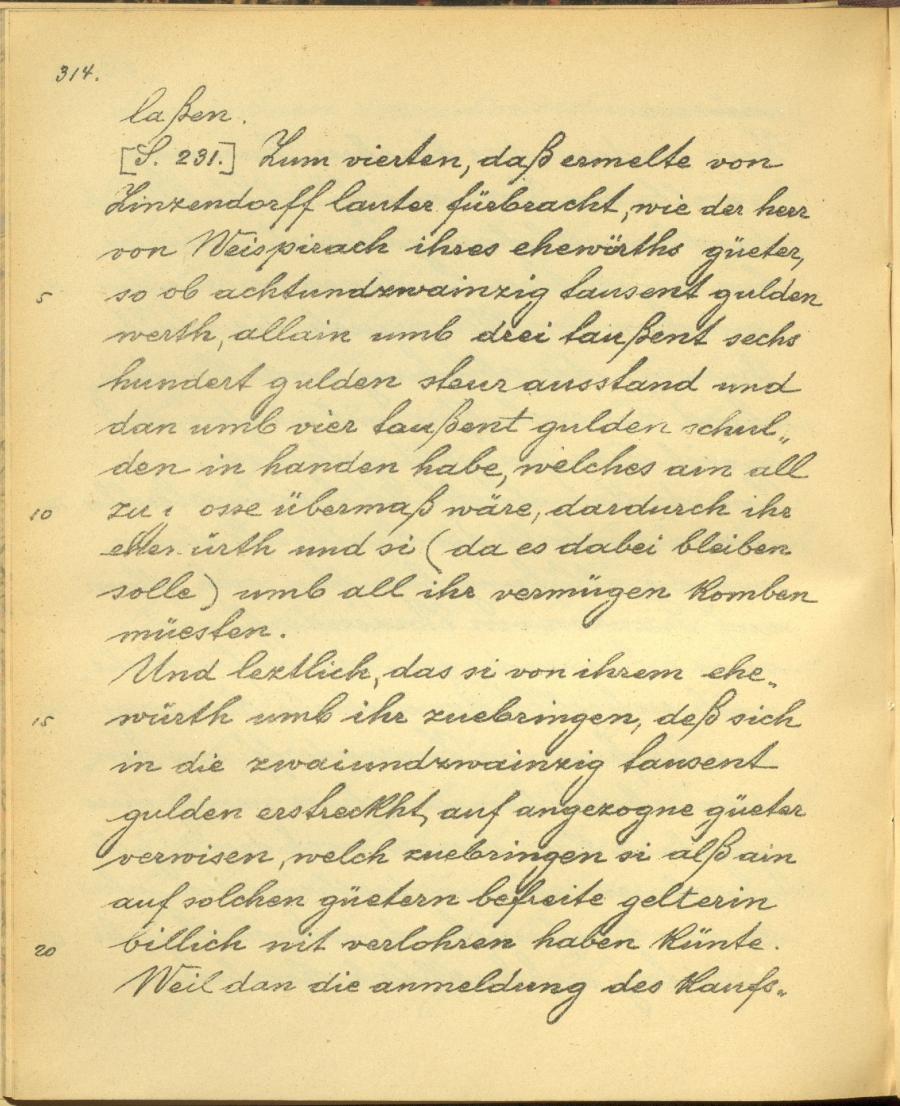 314.
laßen.
[S. 231.] Zum vierten, daß ermelte von
Zinzendorff lauter fürbracht, wie der herr
von Weispirach ihres ehewürths güeter,
5 so ob achtundzwainzig tausent gulden
werth, allain umb drei taußent sechs
hundert gulden steur ausstand und
dan umb vier taußent gulden schul„
den in handen habe, welches ain all
10 zu osse übermaß wäre, dardurch ihr
ürth und si (da es dabei bleiben
solle) umb all ihr vermügen komben
müesten.
Und leztlich, das si von ihrem ehe„
15 würth umb ihr zuebringen, deß sich
in die zwaiundzwainzig tausent
gulden erstreckht, auf angezogne güeter
verwisen, welch zuebringen si alß ain
auf solchen güetern befreite gelterin
20 billich nit verlohren haben künte.
Weil dan die anmeldung des kaufs„